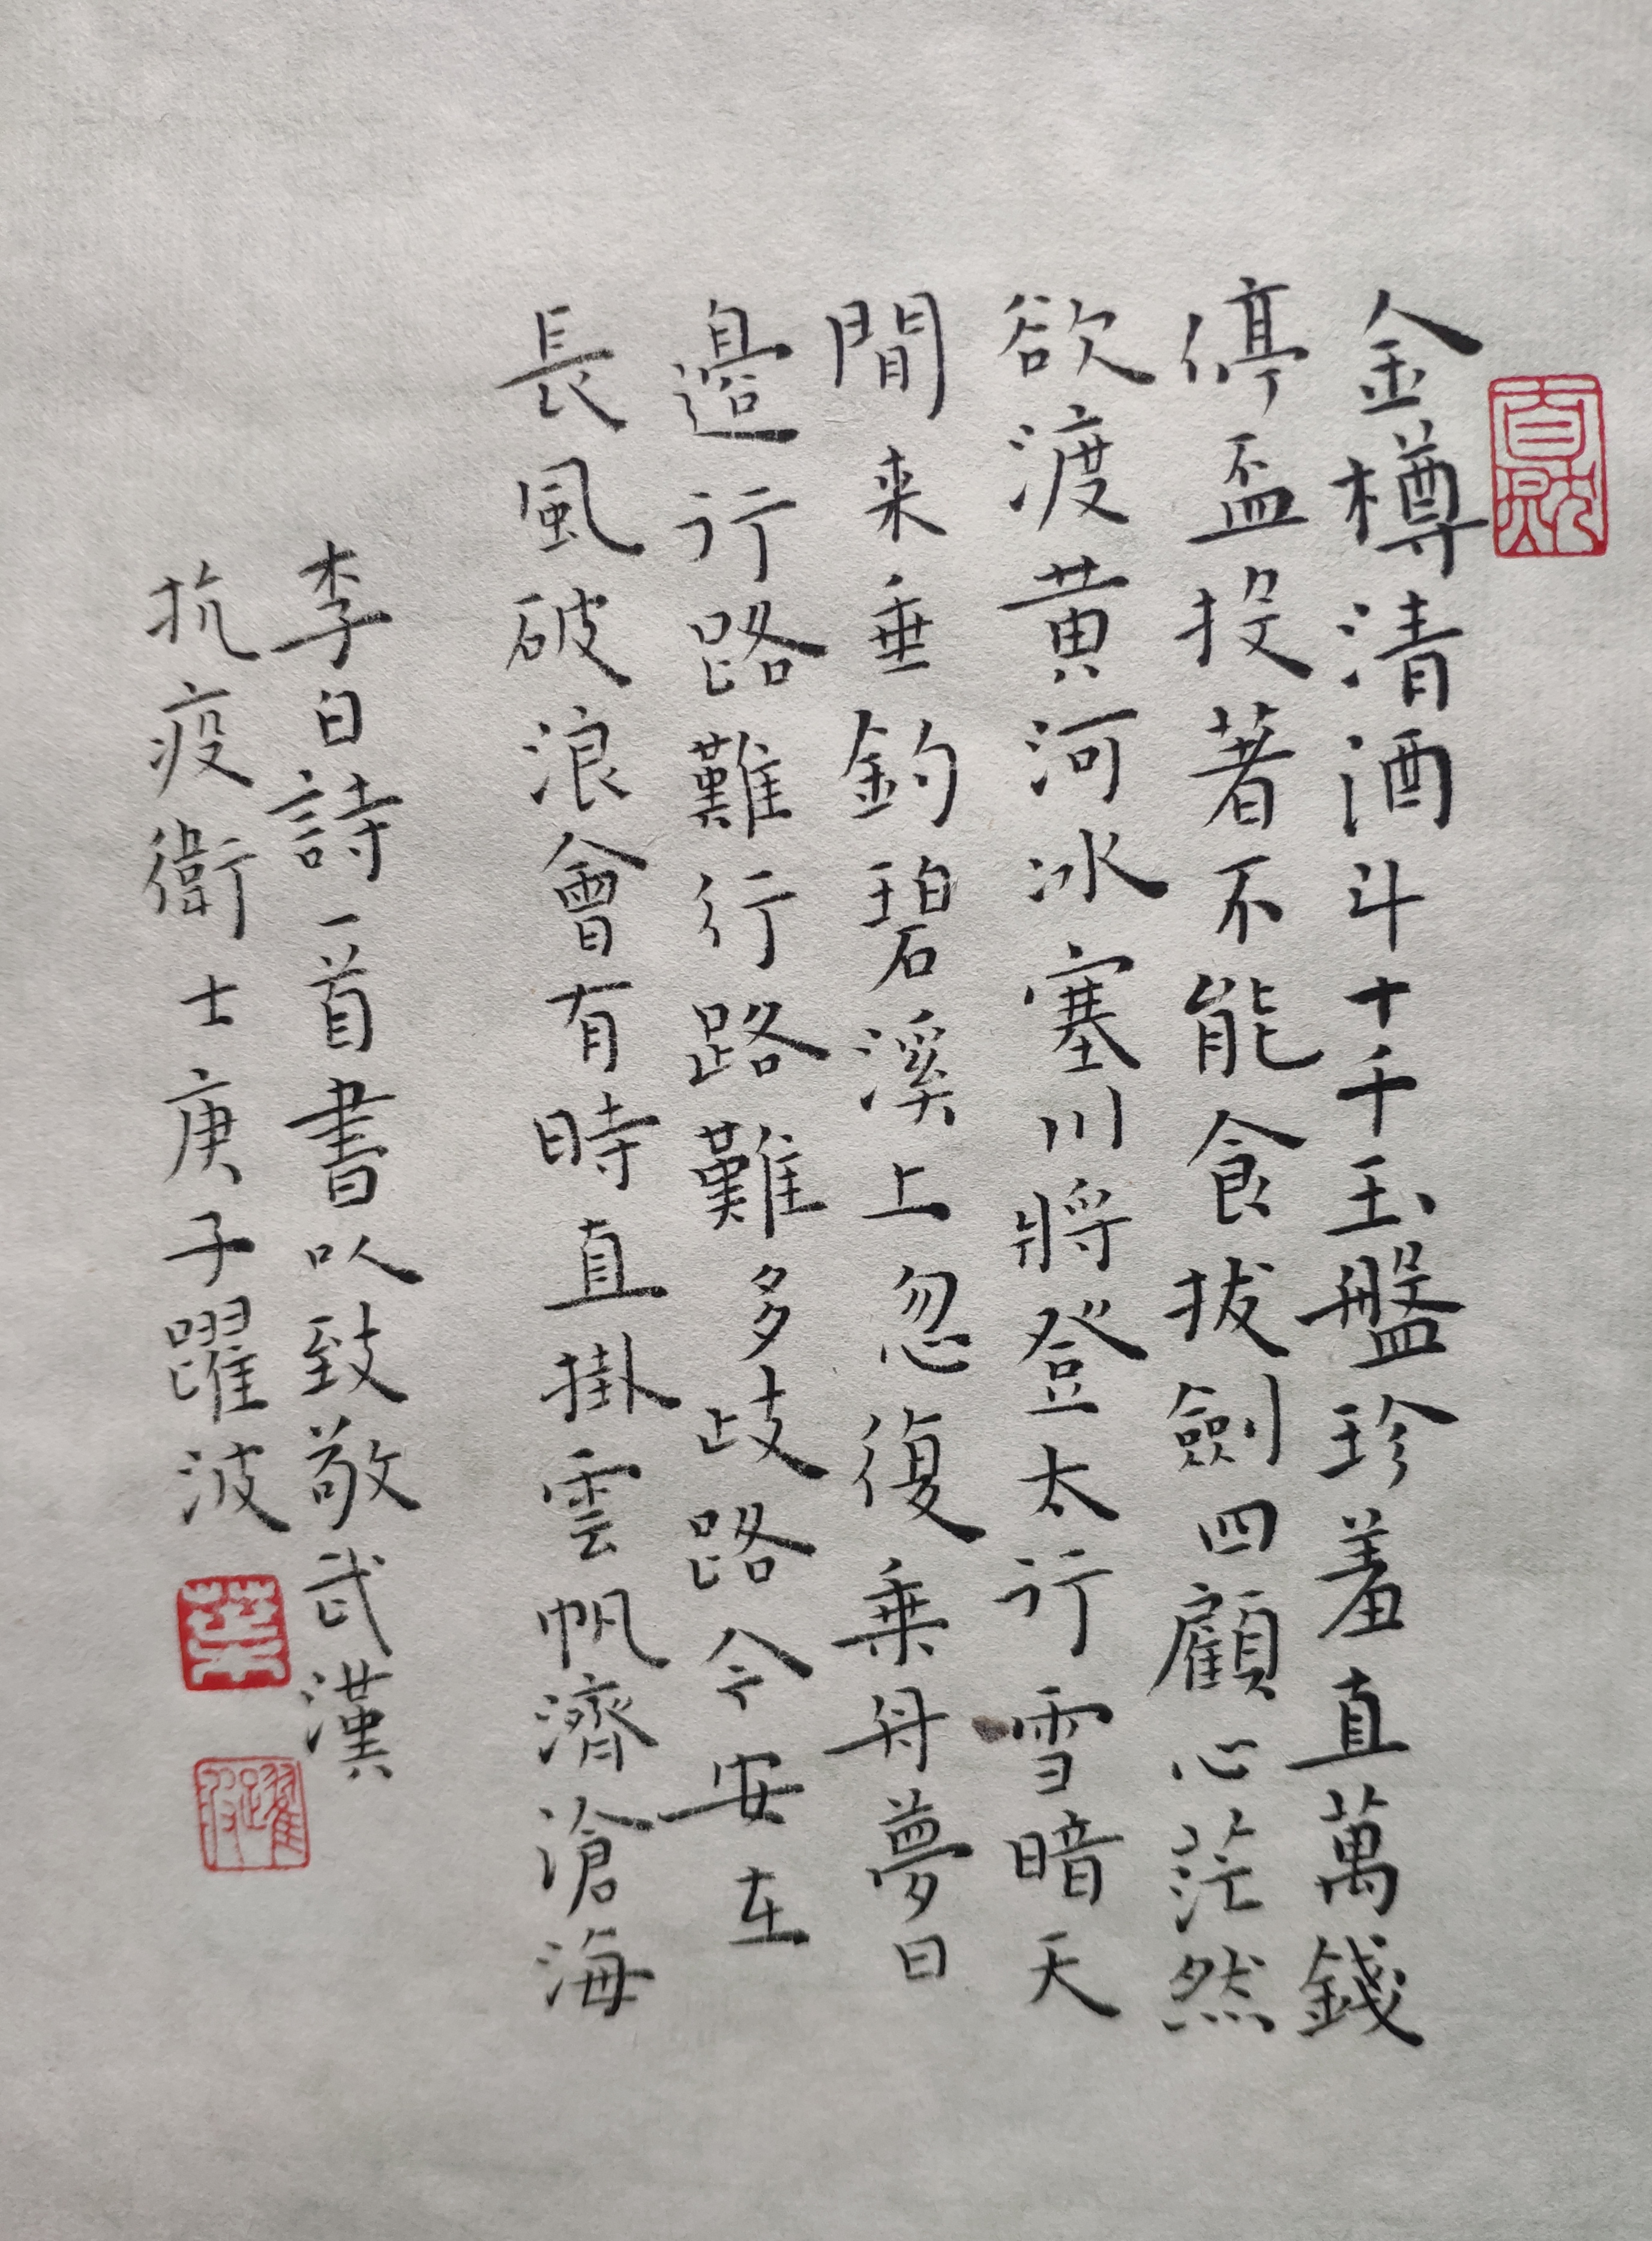 金樽清酒斗十千玉盤珍羞直萬錢
停盃投著不能食拔劍四顧心茫然
欲渡黄河冰塞川將登太行雪暗天
閒来垂釣碧溪上忽復乗舟夢日
邉行路難行路難多歧路今安在
長風破浪會有時直掛雲帆濟滄海
李白詩一首書以致敬武漢
抗疫衛士庚子躍波